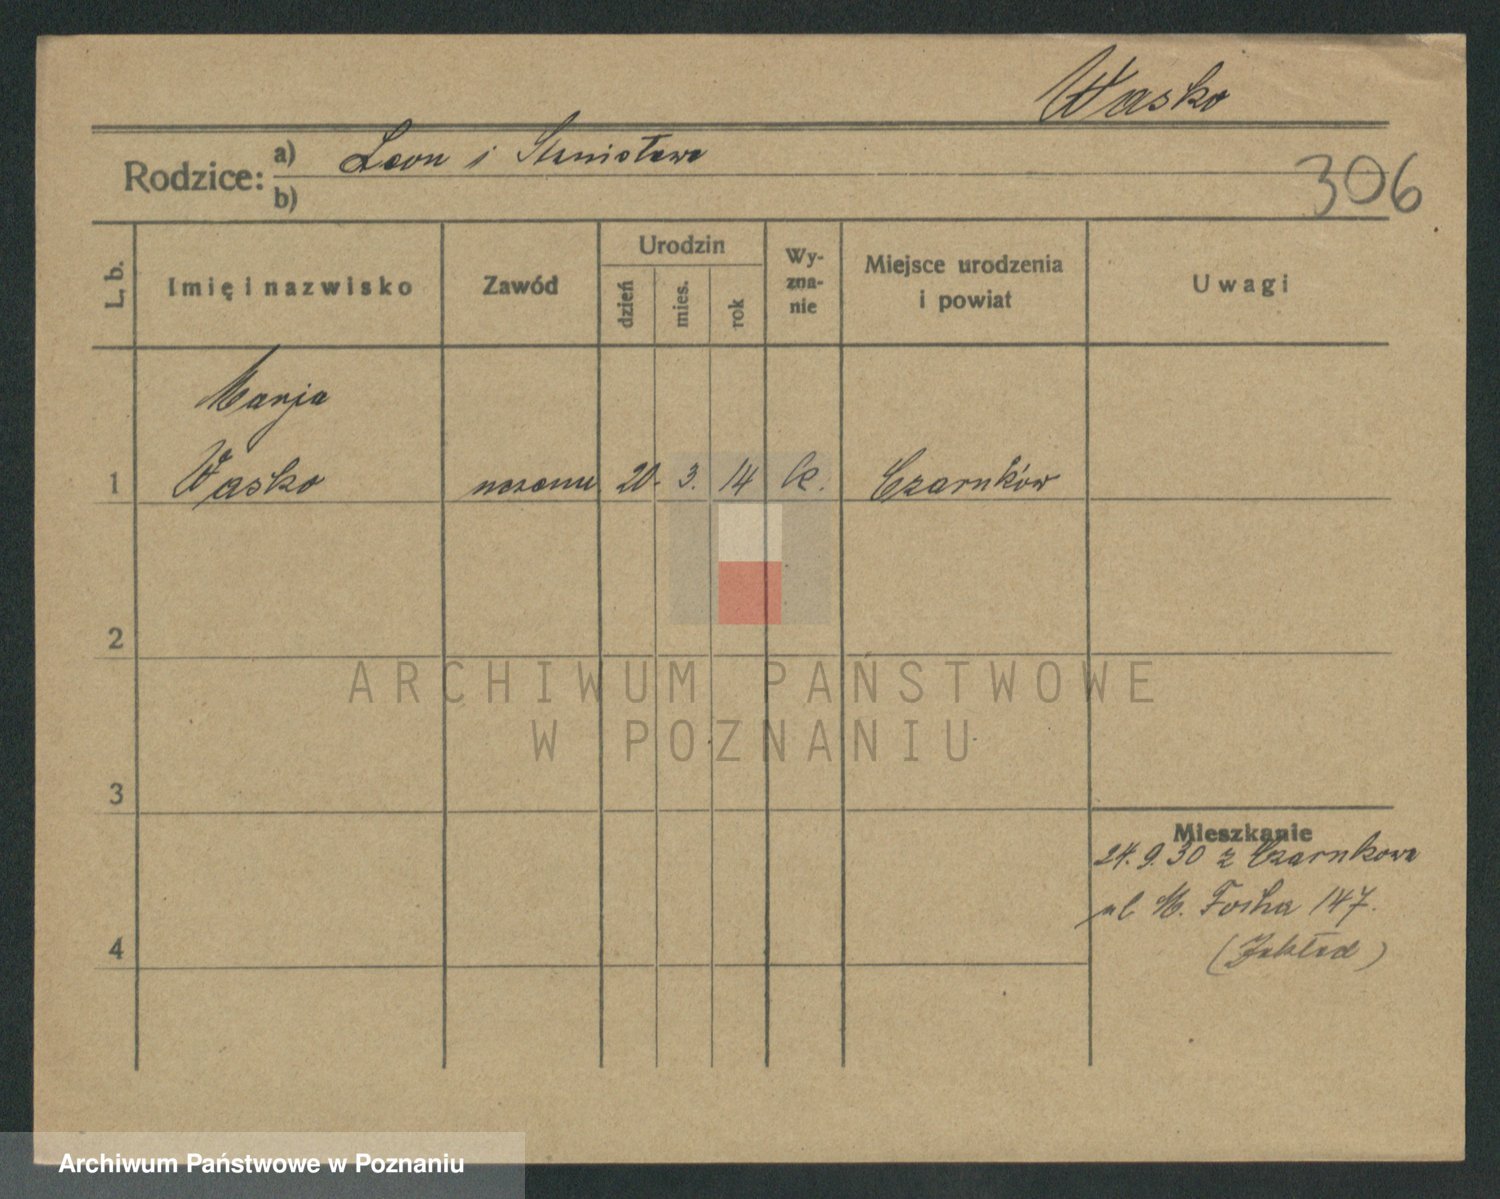 Wasko
Rodzice: a) Leon i Stanisława
b)
306
L. b.
Imię i nazwisko
Zawód
Urodzin
dzień
mies.
rok
Wy-
zna-
nie
Miejsce urodzenia
i powiat
Uwagi
Marja
1 Wasko 20. 3. 14 k. Czarnków
2
3
4
Mieszkanie
24.9.30 z Czarnkowa
ul M. Focha 147.
(Zakład)
ARCHIWUM PAŃSTWOWE
W POZNANIU
Archiwum Państwowe w Poznaniu